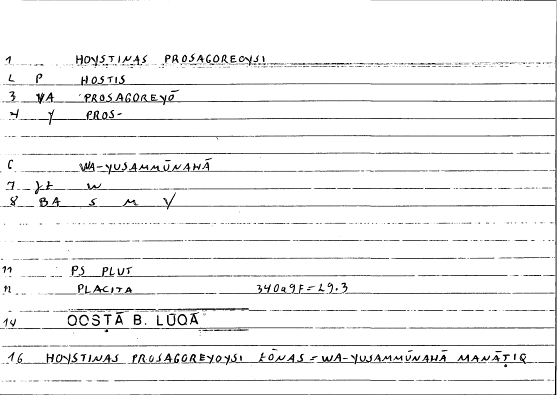 1 HOYSTINAS PROSAGOREOYSI
L P HOSTIS
3 VA PROSAGOREYŌ
4 Y PROS-
6 WA-YUSAMMŪNAHĀ
7 W
8 BA S M Y
11 PS PLUT
12 PLACITA 340a9F=L9.3
14 QOSṬĀ B. LŪQĀ
16 HOYSTINAS PROSAGOREYOYSI ZŌNAS = WA-YUSAMMŪNAHĀ MANĀṬIQ